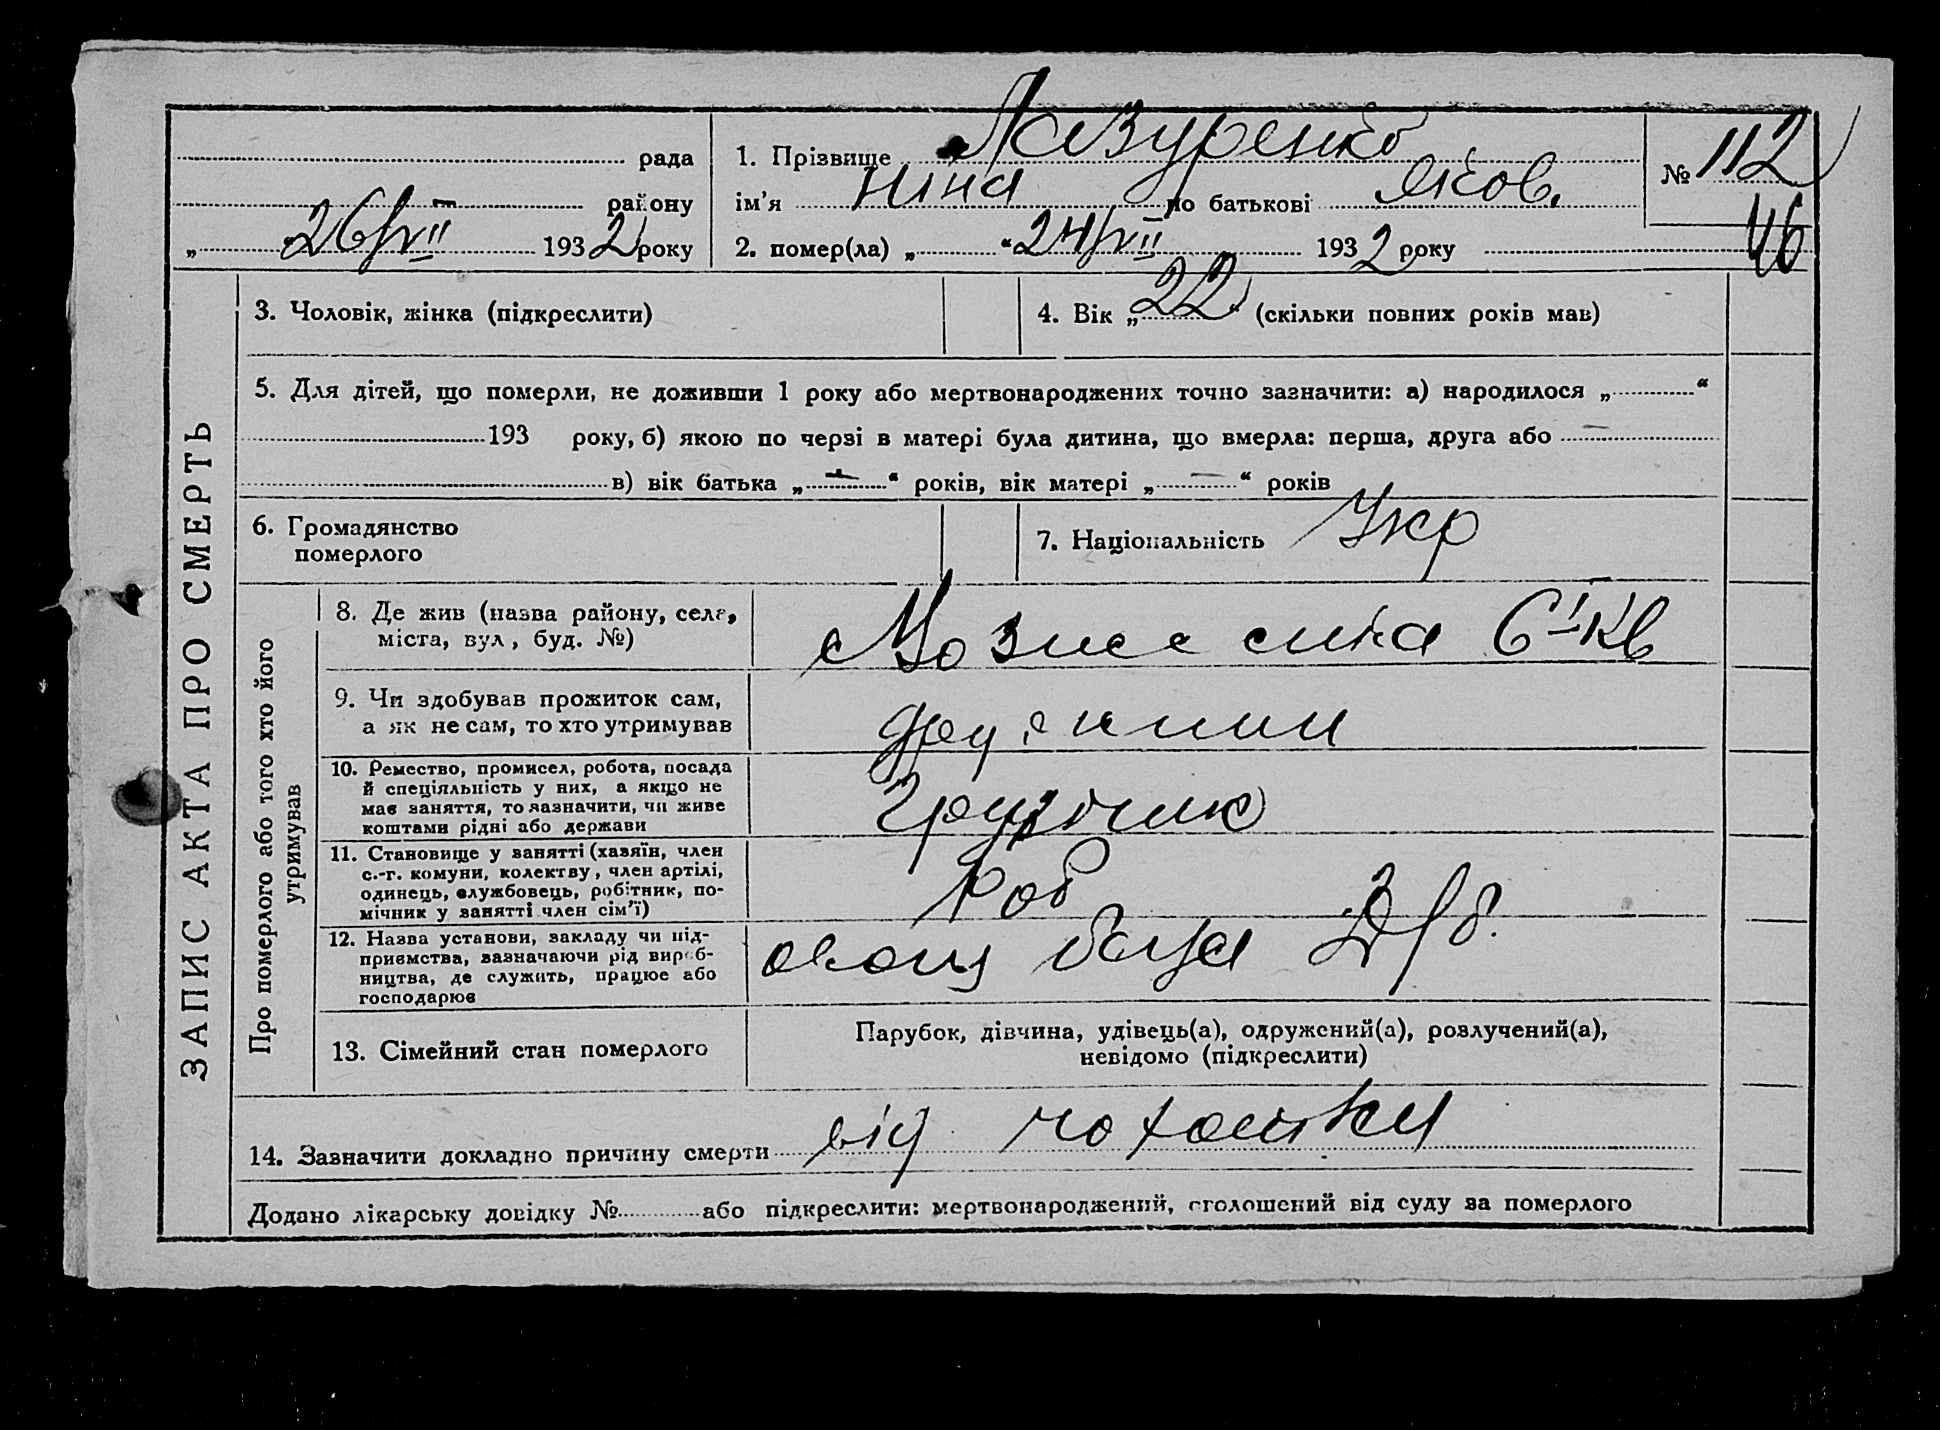 рада
району
„ 26/VII 1932 року
1. Прізвище Лазуренко
ім'я Ніна по батькові Яков.
2. помер(ла) „ “ 24/VII 1932 року
№ 112
46
ЗАПИС АКТА ПРО СМЕРТЬ
3. Чоловік, жінка (підкреслити)
4. Вік „ 22 “ (скільки повних років мав)
5. Для дітей, що померли, не доживши 1 року або мертвонароджених точно зазначити: а) народилося „ “
193 року, б) якою по черзі в матері була дитина, що вмерла: перша, друга або —
в) вік батька „ — “ років, вік матері „ — “ років
6. Громадянство
померлого
7. Національність Укр
Про померлого або того хто його
утримував
8. Де жив (назва району, села,
міста, вул, буд. №)
6 кв
9. Чи здобував прожиток сам,
а як не сам, то хто утримував
10. Ремество, промисел, робота, посада
й спеціяльність у них, а якщо не
має заняття, то зазначити, чи живе
коштами рідні або держави
грузчик
11. Становище у занятті (хазяїн, член
с.-г. комуни, колектву, член артілі,
одинець, службовець, робітник, по-
мічник у занятті член сім'ї)
Роб
12. Назва установи, закладу чи під-
приємства, зазначаючи рід вироб-
ництва, де служить, працює або
господарює
база
13. Сімейний стан померлого
Парубок, дівчина, удівець(а), одружений(а), розлучений(а),
невідомо (підкреслити)
14. Зазначити докладно причину смерти від
Додано лікарську довідку № або підкреслити: мертвонароджений, оголошений від суду за померлого